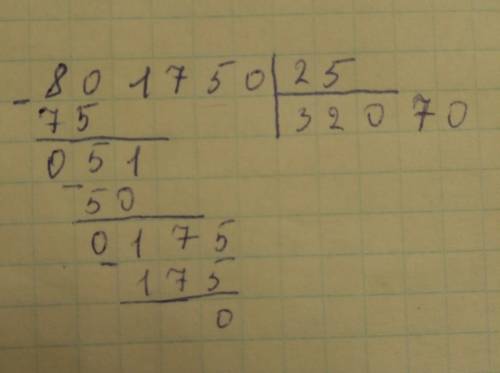 - 801750 | 25
75 | 32070
051
- 50
0175
- 175
0